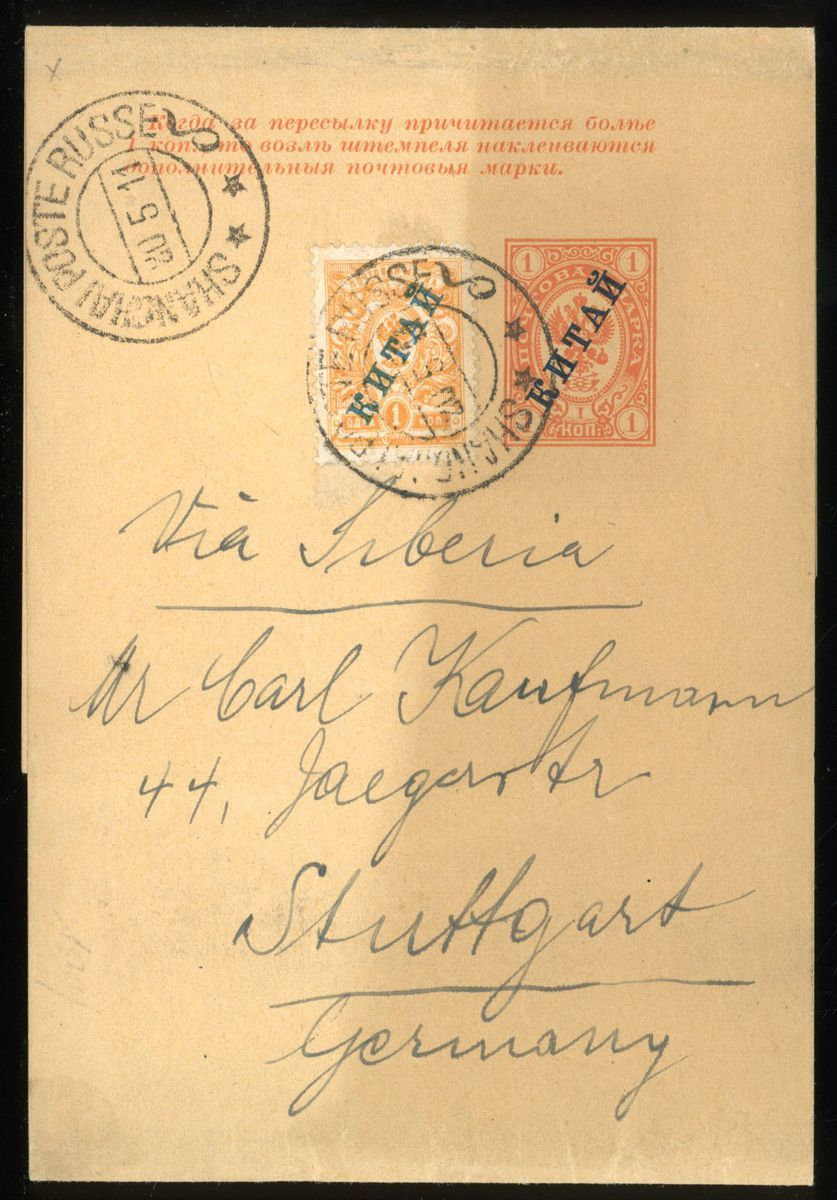 Когда за пересылку причитается болѣе
1 коп. то возлѣ штемпеля наклеиваются
дополнительныя почтовыя марки.
SHANGHAI POSTE RUSSE
20 5 11
КИТАЙ
1
SHANG POSTE RUSSE
1 1
ПОЧТОВАЯ МАРКА
КИТАЙ
1 КОП. 1
Via Siberia
Mr Carl Kaufmann
44, Jaegerstr
Stuttgart
Germany